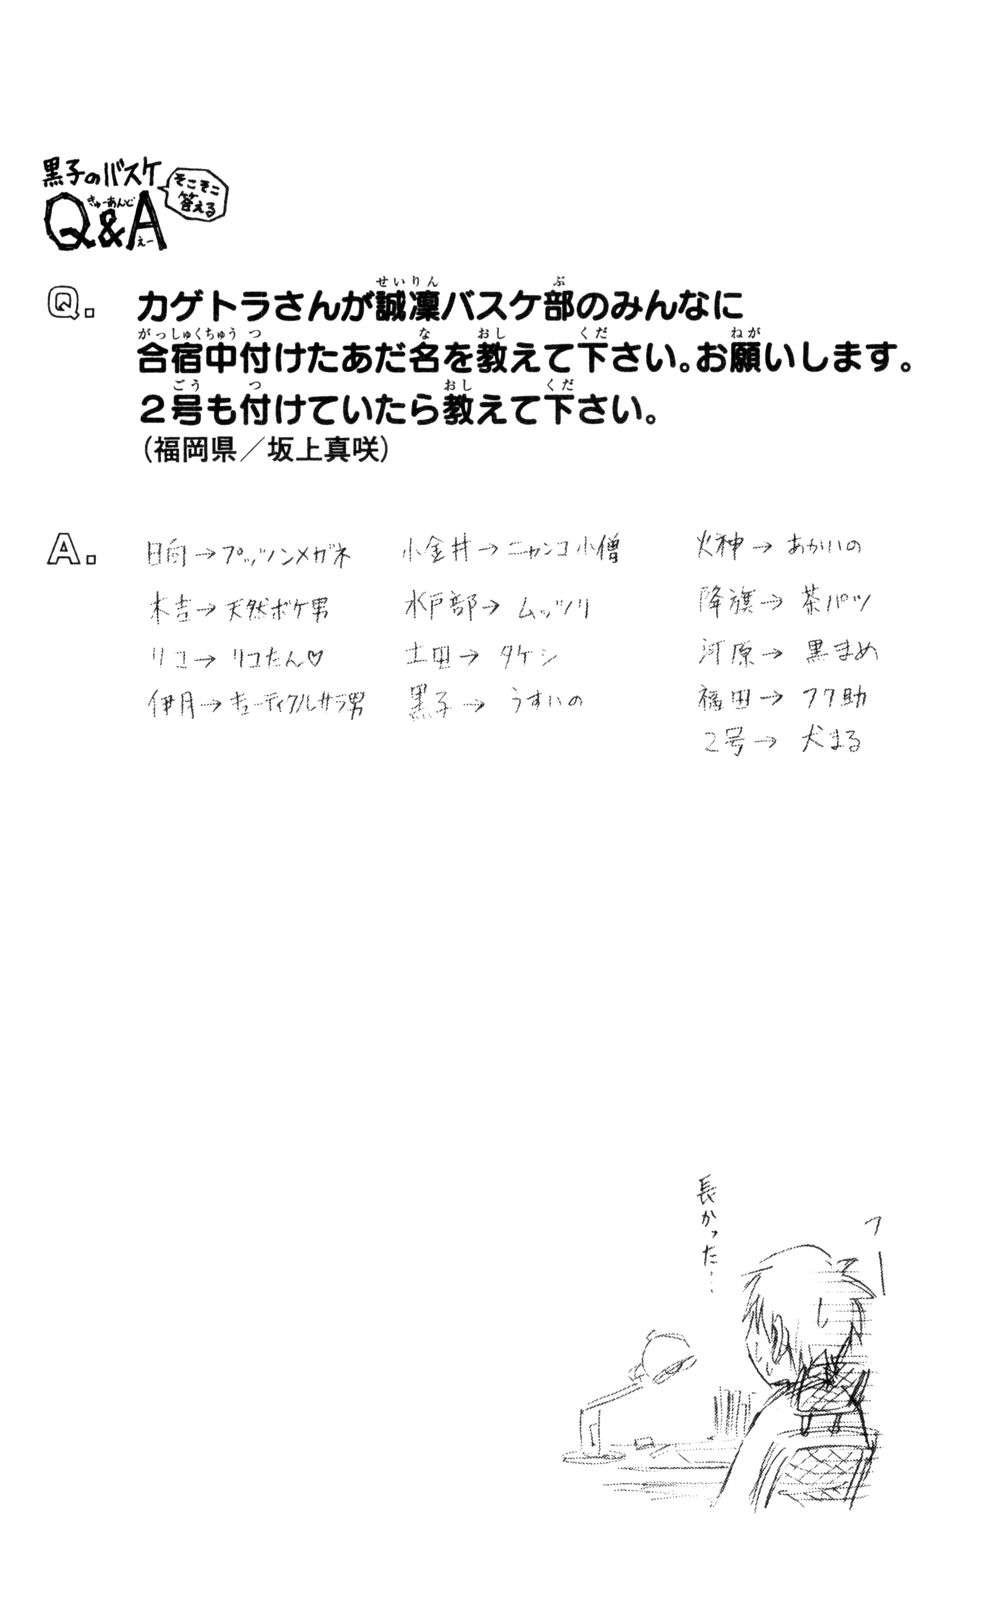 黒子のバスケ
そこそこ
答える
きゅーあんど
Q&A
えー
Q. カゲトラさんが誠凜バスケ部のみんなに
合宿中付けたあだ名を教えて下さい。お願いします。
２号も付けていたら教えて下さい。
（福岡県／坂上真咲）
A.
日向→プッツンメガネ
木吉→天然ボケ男
リコ→リコたん♡
伊月→キューティクルサラ男
小金井→ニャンコ小僧
水戸部→ムッツリ
土田→タケシ
黒子→うすいの
火神→あかいの
降旗→茶パツ
河原→黒まめ
福田→フク助
2号→犬まる
フー
長かった…